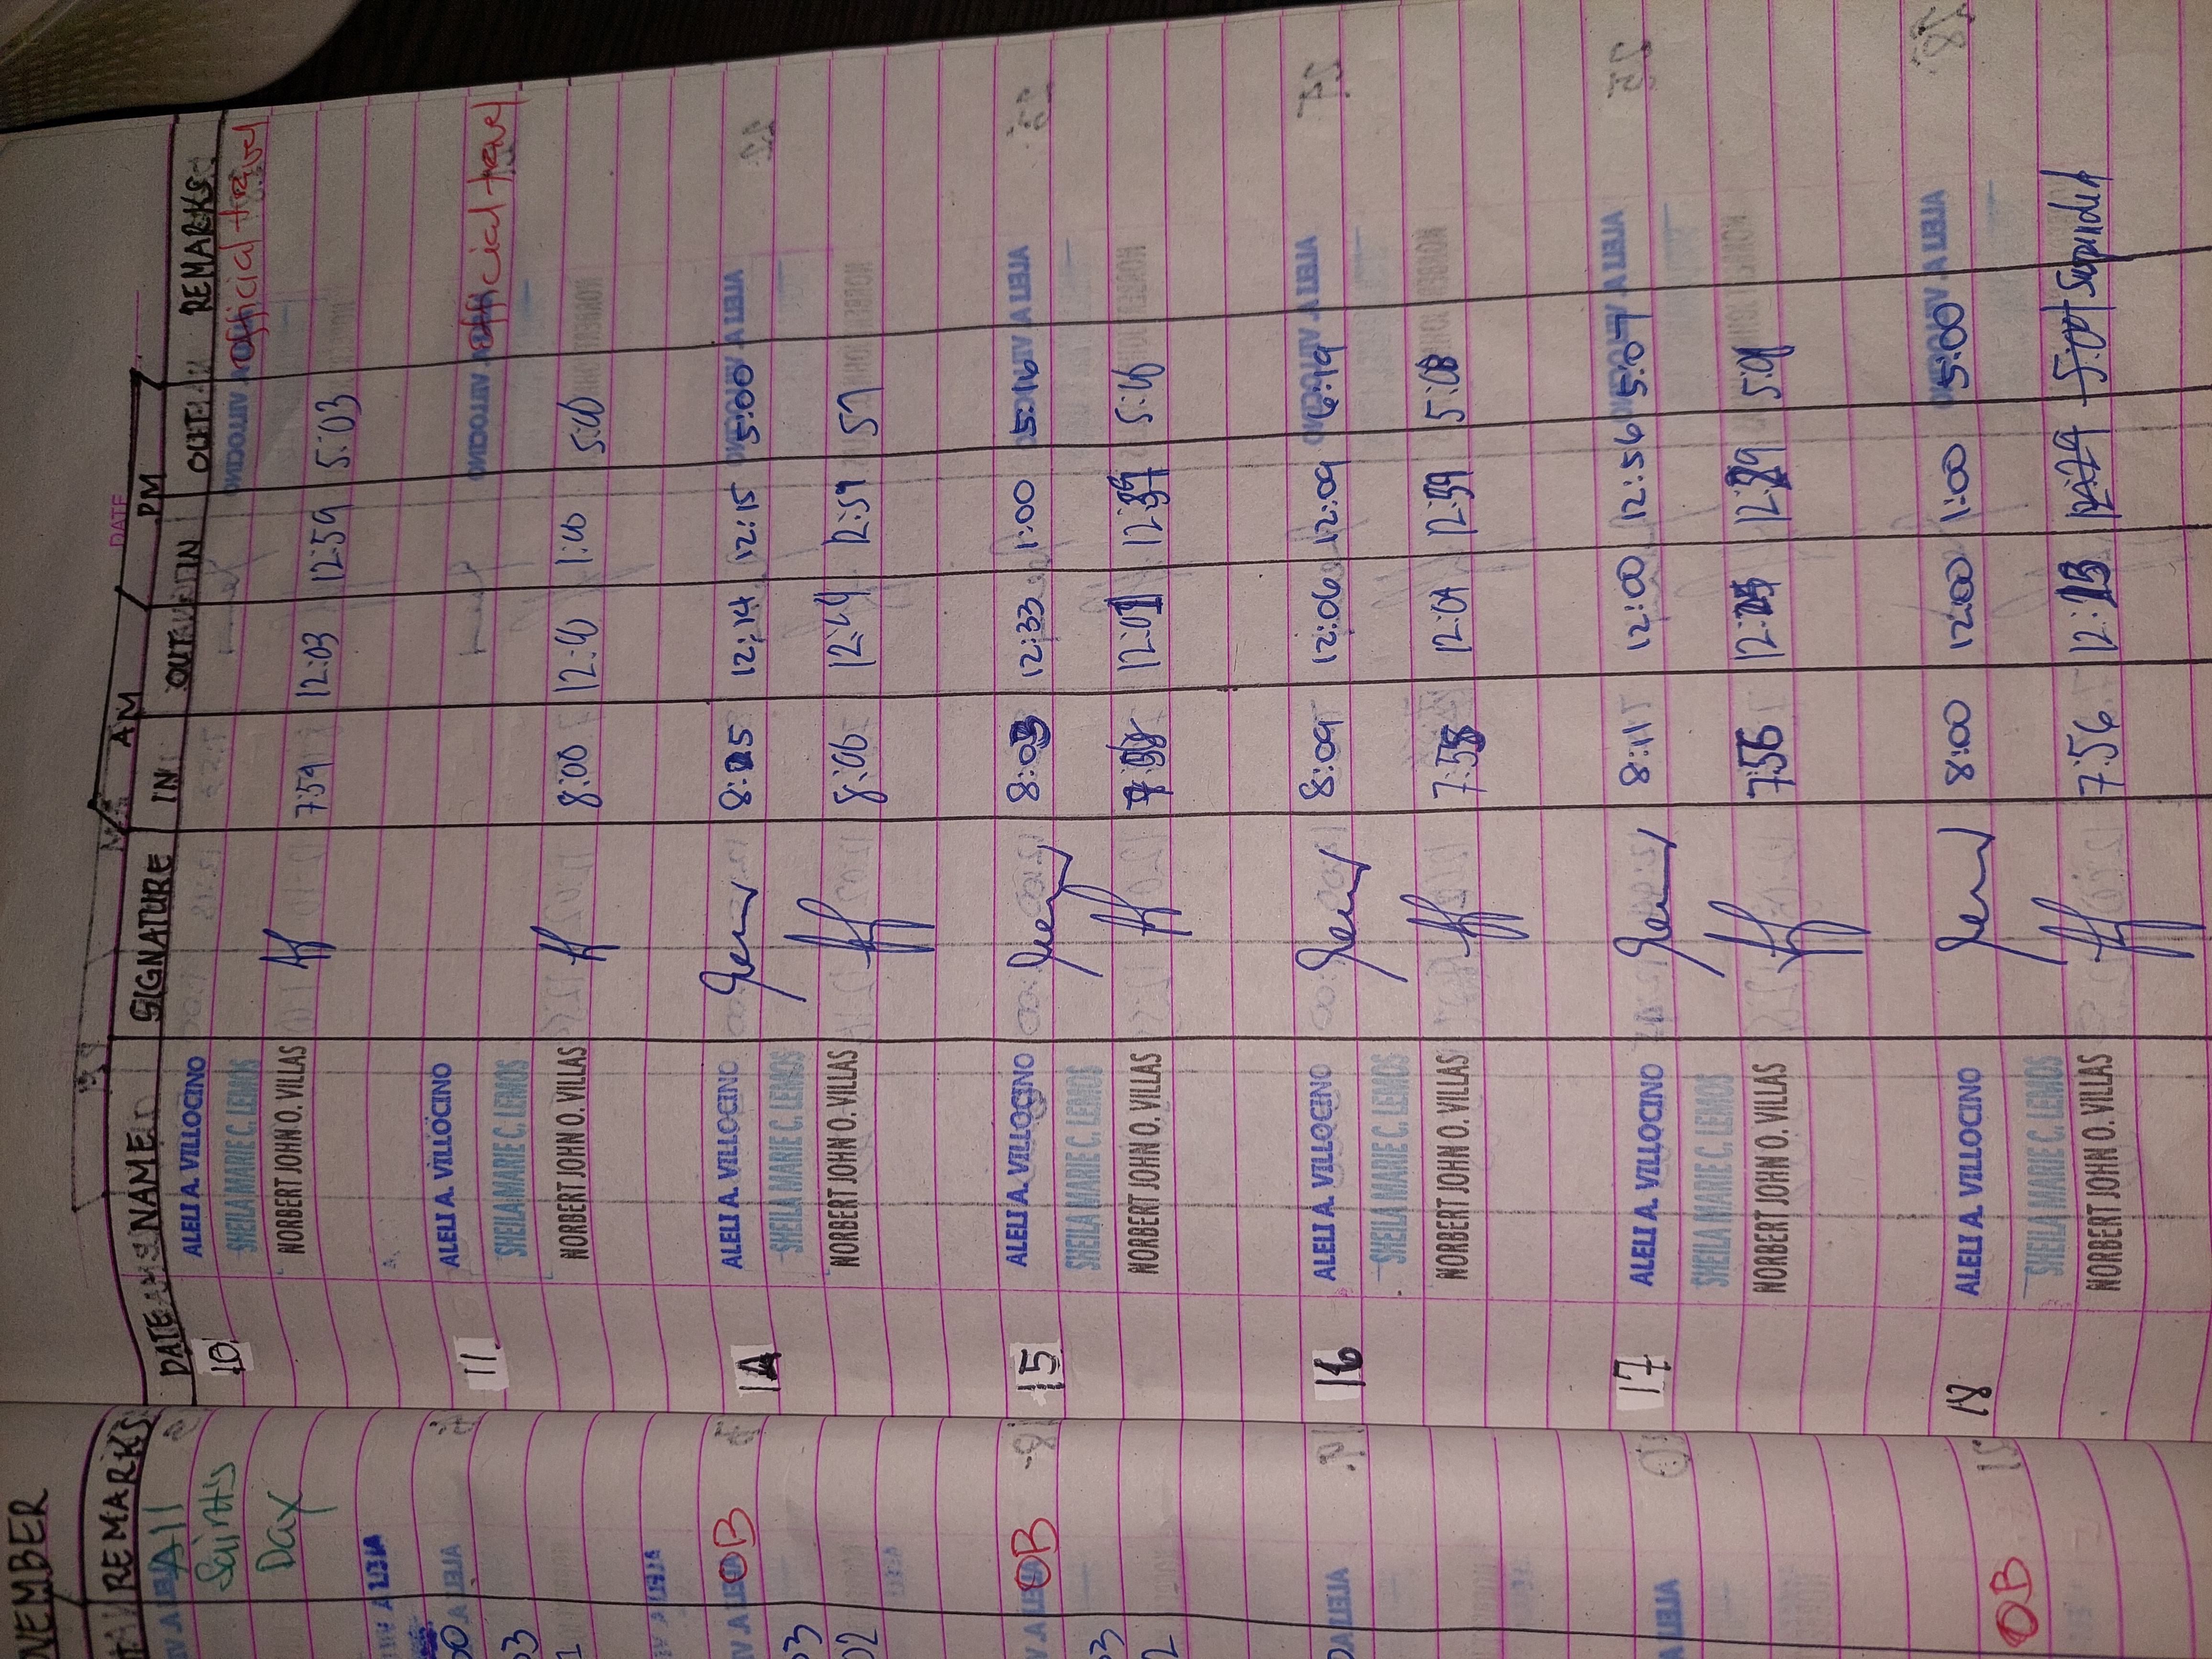 DATE
AM PM
DATE NAME SIGNATURE IN OUT IN OUT REMARKS
10 ALELI A. VILLOCINO official travel
SHEILA MARIE C. LEMOS
NORBERT JOHN O. VILLAS 7:59 12:03 12:59 5:03
11 ALELI A. VILLOCINO official travel
SHEILA MARIE C. LEMOS
NORBERT JOHN O. VILLAS 8:00 12:40 1:00 5:00
14 ALELI A. VILLOCINO 12:14 12:15 5:00
SHEILA MARIE C. LEMOS
NORBERT JOHN O. VILLAS 8:00 12:49 12:59
15 ALELI A. VILLOCINO 8:03 12:33 1:00 5:16
SHEILA MARIE C. LEMOS
NORBERT JOHN O. VILLAS 12:01 5:16
16 ALELI A. VILLOCINO 8:09 12:06 12:09 6:19
SHEILA MARIE C. LEMOS
NORBERT JOHN O. VILLAS 7:58 12:01 12:59 5:08
17 ALELI A. VILLOCINO 8:11 12:00 12:56 5:07
SHEILA MARIE C. LEMOS
NORBERT JOHN O. VILLAS 7:56 5:01
18 ALELI A. VILLOCINO 8:00 12:00 1:00 5:00
SHEILA MARIE C. LEMOS
NORBERT JOHN O. VILLAS 7:56 12:13 5:01 Suspended
REMARKS
All
Saints
Day
OB
OB
OB